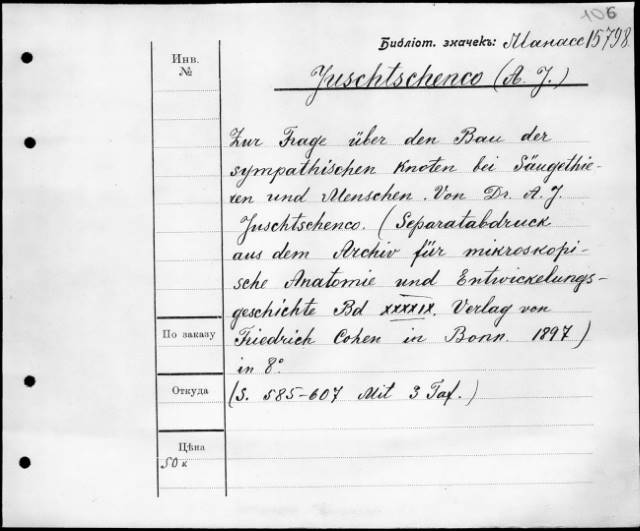 106
Библіот. значекъ: Манасс 15798.
Инв.
№
Juschtschenco (A. J.)
Zur Frage über den Bau der
sympathischen Knoten bei Säugethie-
ren und Menschen. Von Dr. A. J.
Juschtschenco. (Separatabdruck
aus dem Archiv für mikroskopi-
sche Anatomie und Entwickelungs-
geschichte Bd XXXXIX. Verlag von
Friedrich Cohen in Bonn. 1897)
in 8°.
(S. 585-607 Mit 3 Taf.)
По заказу
Откуда
Цѣна
50 к